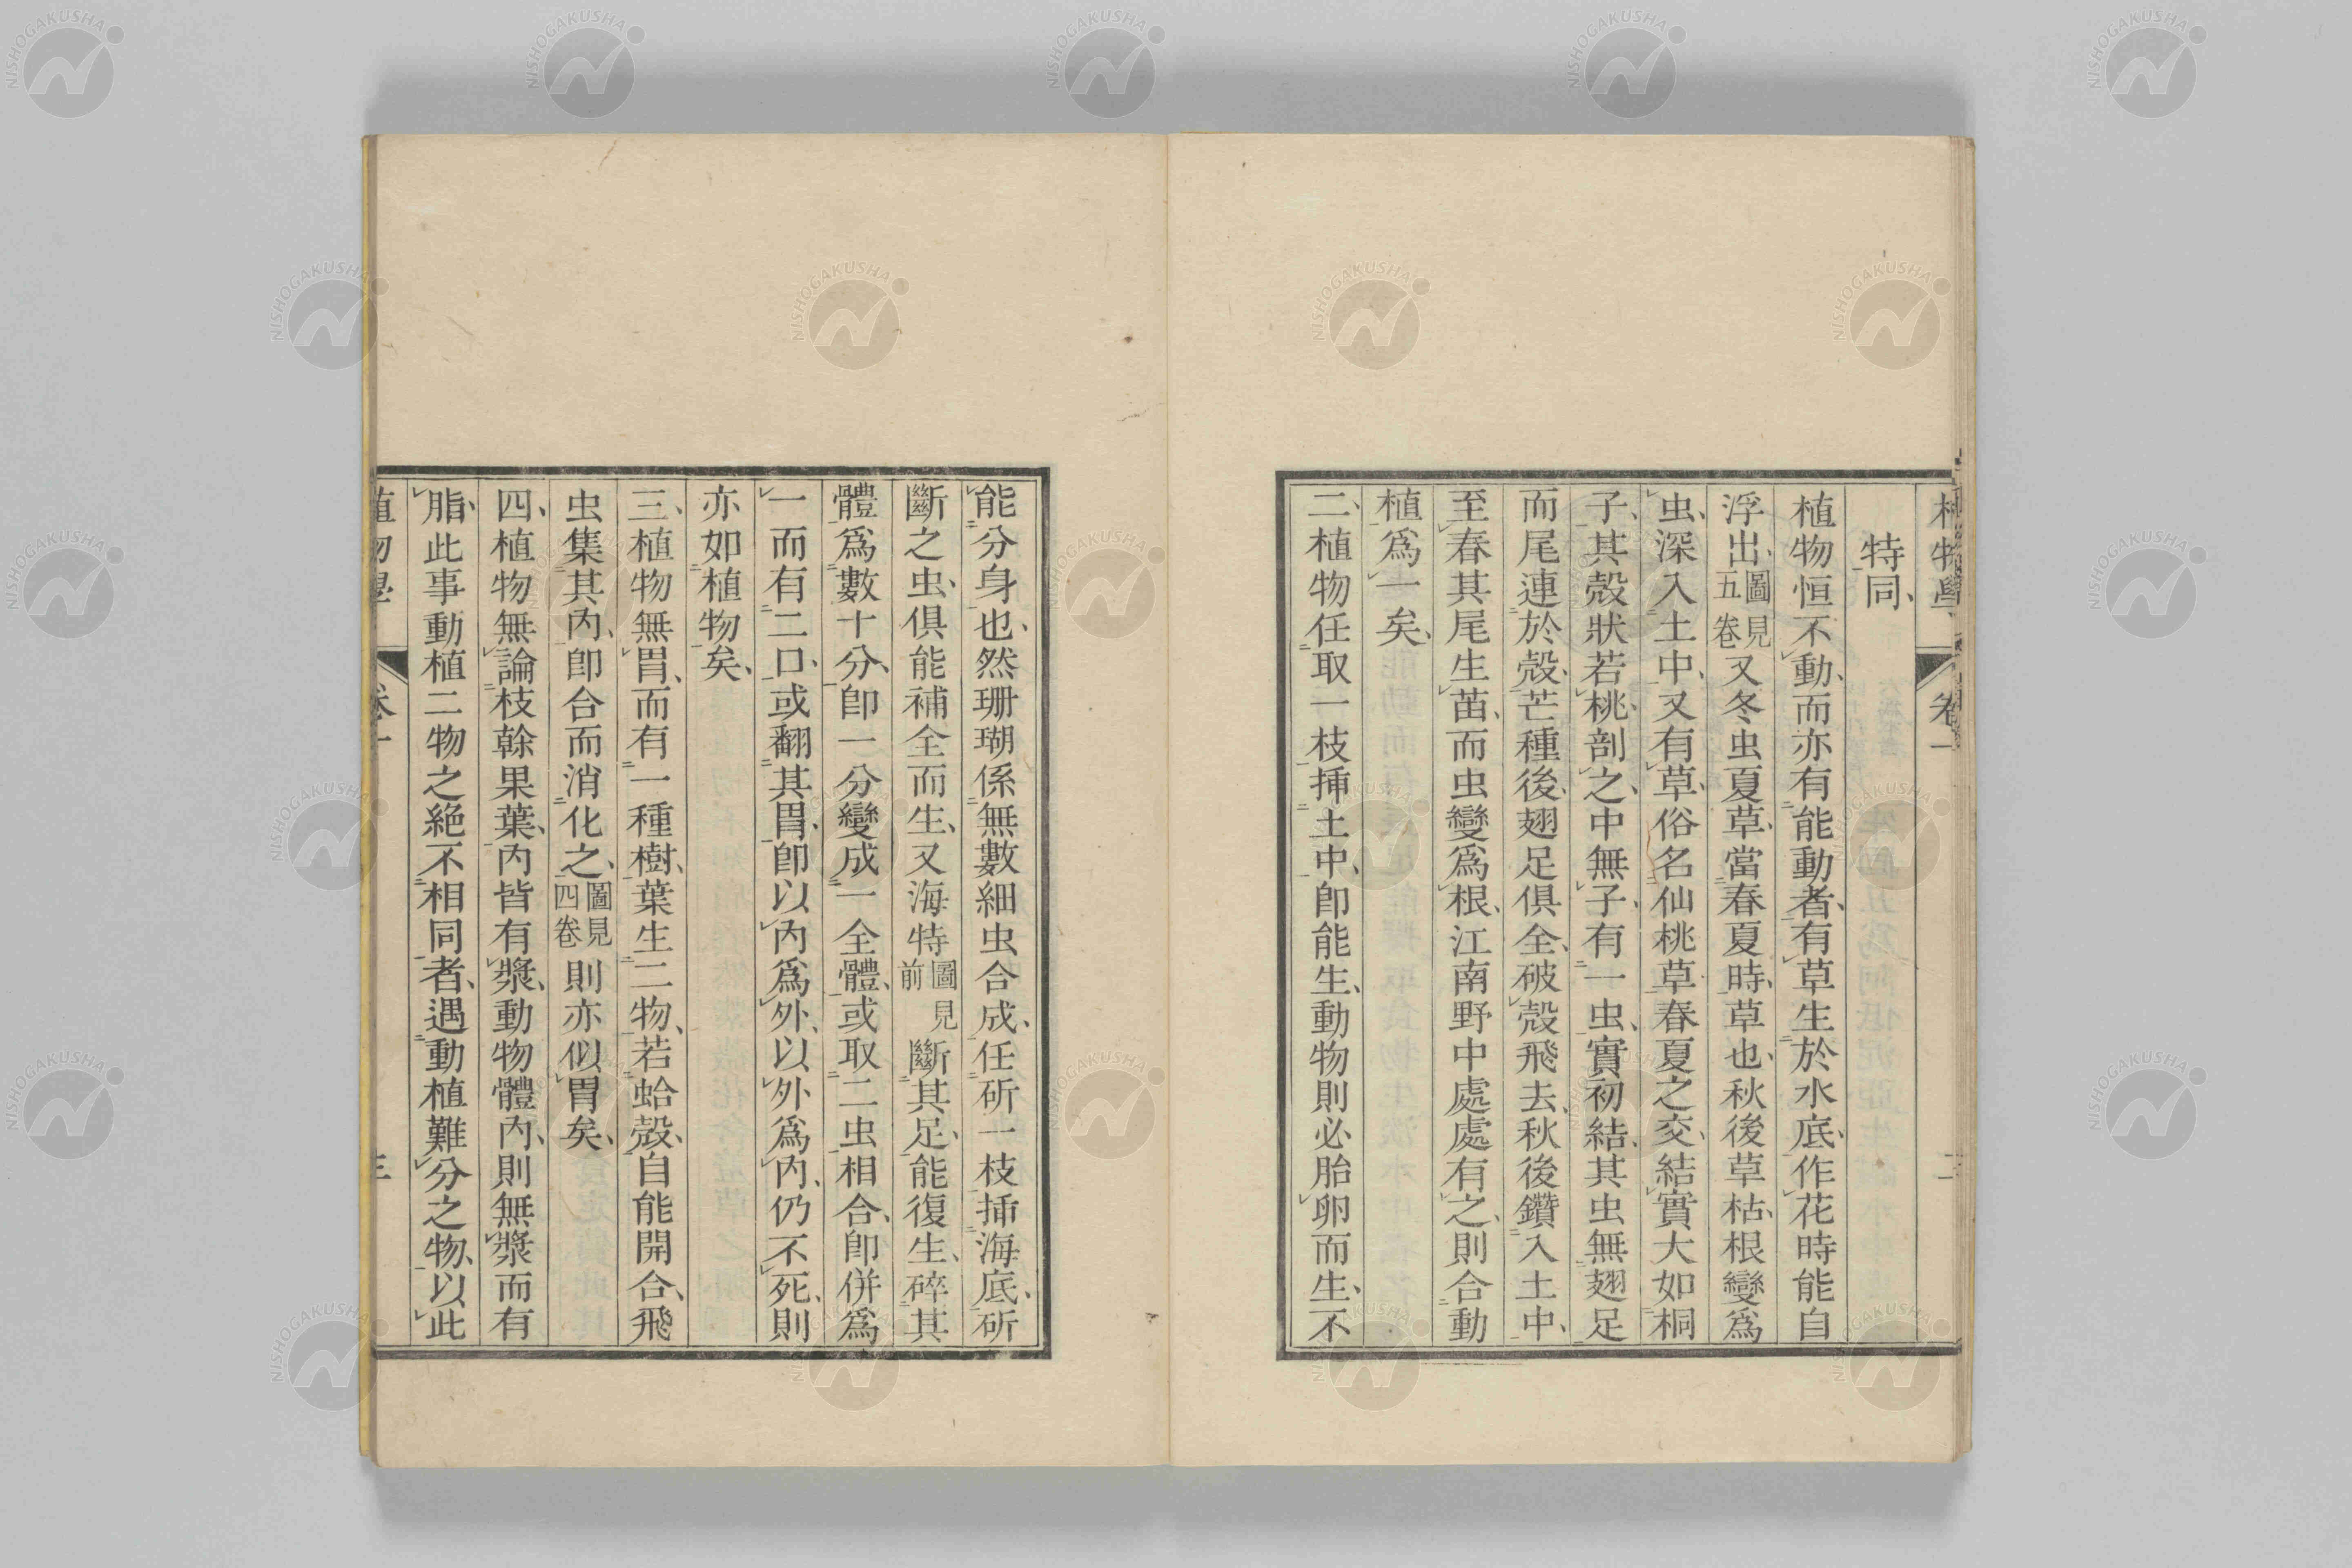 植物學 卷一 二
特同、
植物恒不動、而亦有能動者、有草生於水底、作花時能自
浮出、圖見五卷又冬虫夏草、當春夏時、草也、秋後草枯、根變爲
虫、深入土中、又有草、俗名仙桃草、春夏之交、結實大如桐
子、其殼狀若桃、剖之、中無子、有一虫、實初結、其虫無翅足
而尾連於殼、芒種後、翅足俱全、破殼飛去、秋後鑽入土中、
至春其尾生苗、而虫變爲根、江南野中處處有之、則合動
植爲一矣、
二、植物任取一枝、揷土中、卽能生、動物則必胎卵而生、不
能分身也、然珊瑚係無數細虫合成、任斫一枝揷海底、斫
斷之虫、俱能補全而生、又海特圖見前斷其足、能復生、碎其
體爲數十分、卽一分變成一全體、或取二虫相合、卽併爲
一而有二口、或翻其胃、卽以內爲外、以外爲內、仍不死、則
亦如植物矣、
三、植物無胃、而有一種樹、葉生二物、若蛤殼、自能開合、飛
虫集其內、卽合而消化之、圖見四卷則亦似胃矣、
四、植物無論枝榦果葉、內皆有漿、動物體內、則無漿而有
脂、此事動植二物之絶不相同者、遇動植難分之物、以此
植物學 卷一 三
NISHOGAKUSHA